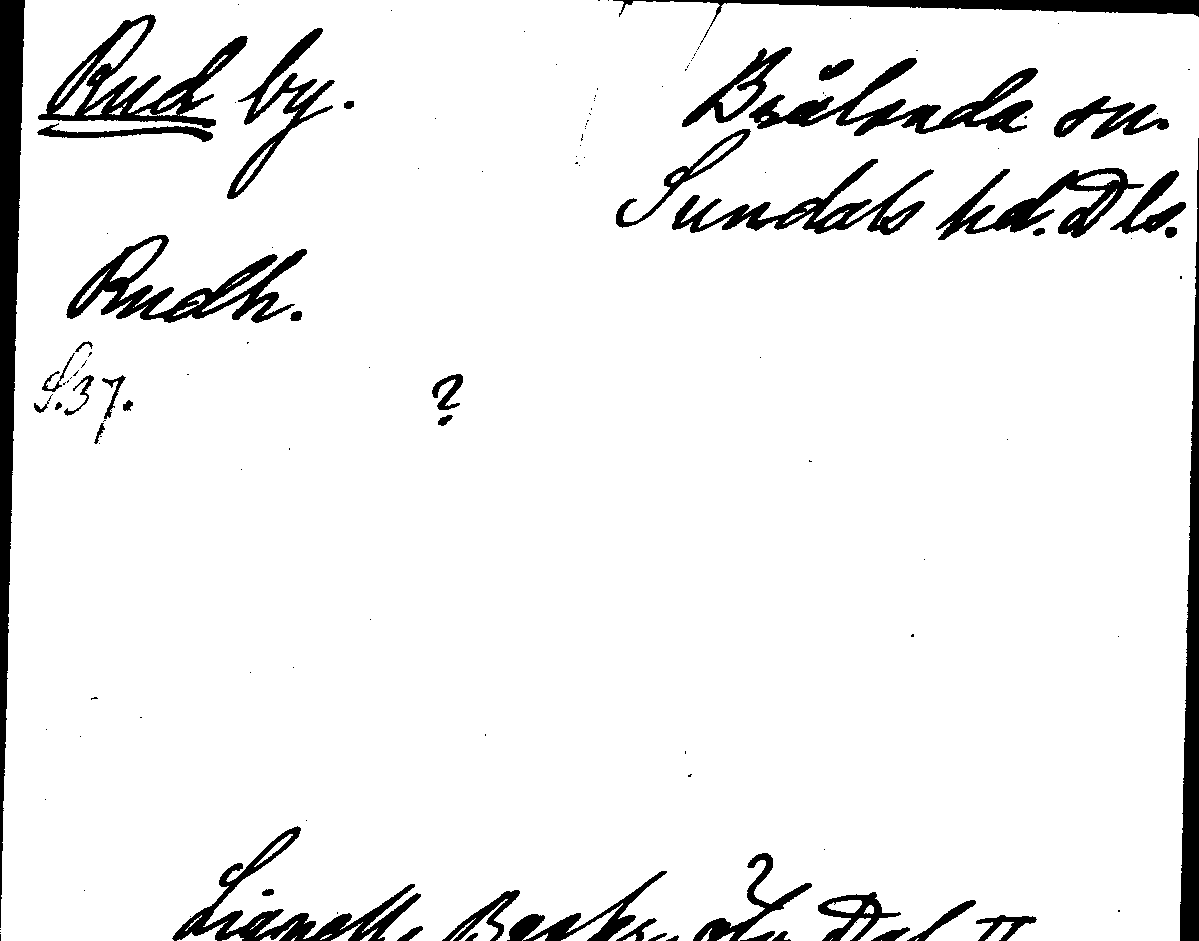 Rud by. Brålanda sn.
Sundals hd. Dls.
Rudh.
S.37. ?
Lignell, Beskr. öfv. Dal II